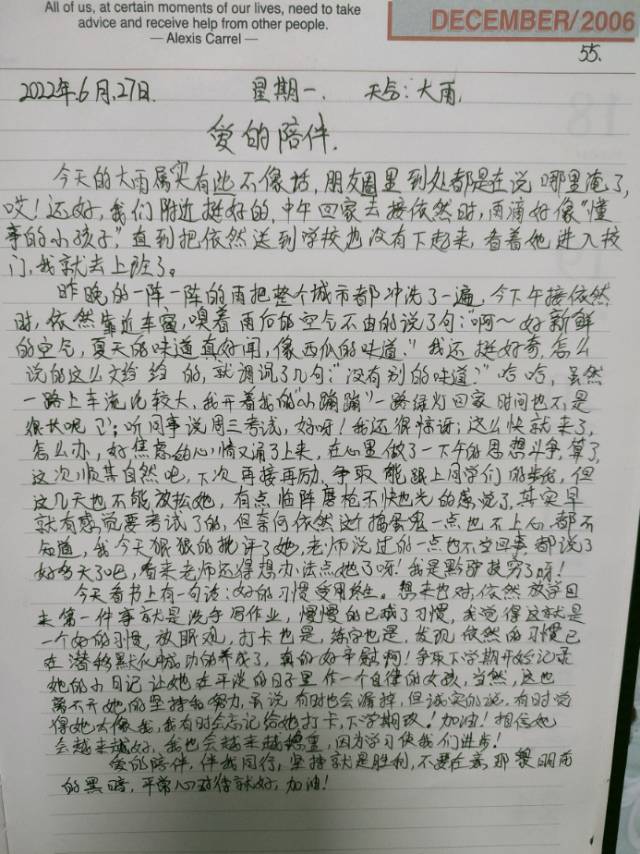 All of us, at certain moments of our lives, need to take
advice and receive help from other people.
— Alexis Carrel —
DECEMBER/2006
55.
2022年.6月.27日. 星期一. 天气:大雨.
爱的陪伴.
今天的大雨属实有些不像话,朋友圈里到处都是在说哪里淹了,
哎!还好,我们附近挺好的,中午回家去接依然时,雨滴好像“懂
事的小孩子”,直到把依然送到学校也没有下起来,看着她进入校
门,我就去上班了。
昨晚的一阵一阵的雨把整个城市都冲洗了一遍,今下午接依然
时,依然靠近车窗,嗅着雨后的空气不由的说了句:“啊~好新鲜
的空气,夏天的味道真好闻,像西瓜的味道.”我还挺好奇,怎么
说的这么文绉绉的,就调侃了几句:“没有别的味道?”哈哈,虽然
一路上车流比较大,我开着我的“小蹦蹦”一路绿灯回家时间也不是
很长呢!听同事说周三考试,好呀!我还很惊讶:这么快就来了,
怎么办,好焦虑的心情又涌了上来,在心里做了一下午的思想斗争,算了,
这次顺其自然吧,下次再接再励,争取能跟上同学们的步伐,但
这几天也不能放松她,有点临阵磨枪不快也光的感觉了,其实早
就有感觉要考试了的,但奈何依然这个捣蛋鬼一点也不上心,都不
知道,我今天狠狠的批评了她,老师说过的一点也不当回事,都说了
好多天了吧,看来老师还得想办法点她了呀!我是黔驴技穷了呀!
今天看书上有一句话:好的习惯受用终生。想来也对,依然放学回
来第一件事就是洗手写作业,慢慢的已成了习惯,我觉得这就是
一个好的习惯,放眼观,打卡也是,练字也是,发现依然的习惯已
在潜移默化中成功的养成了,真的好幸慰啊!争取下学期开始记录
她的小日记让她在平淡的日子里作一个自律的女孩,当然,这也
离不开她的坚持和努力,虽说有时也会漏掉,但诚实的说,有时觉
得她太像我,我有时会忘记给她打卡,下学期改!加油!相信她
会越来越好,我也会越来越稳重,因为学习使我们进步!
爱的陪伴,伴我同行,坚持就是胜利,不要在意那黎明前
的黑暗,平常心对待就好,加油!